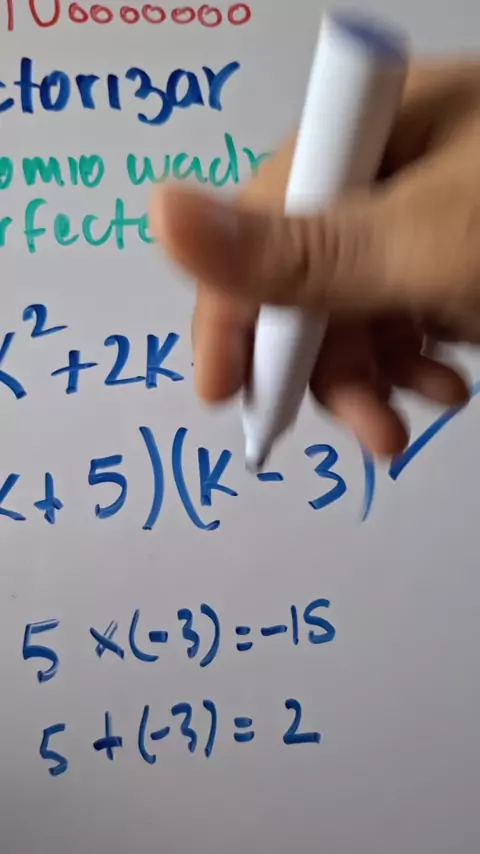 10ooooooo
ctorizar
omio cuadr
rfecto
k²+2k
k+5)(k-3)
5 ×(-3)=-15
5 +(-3)= 2